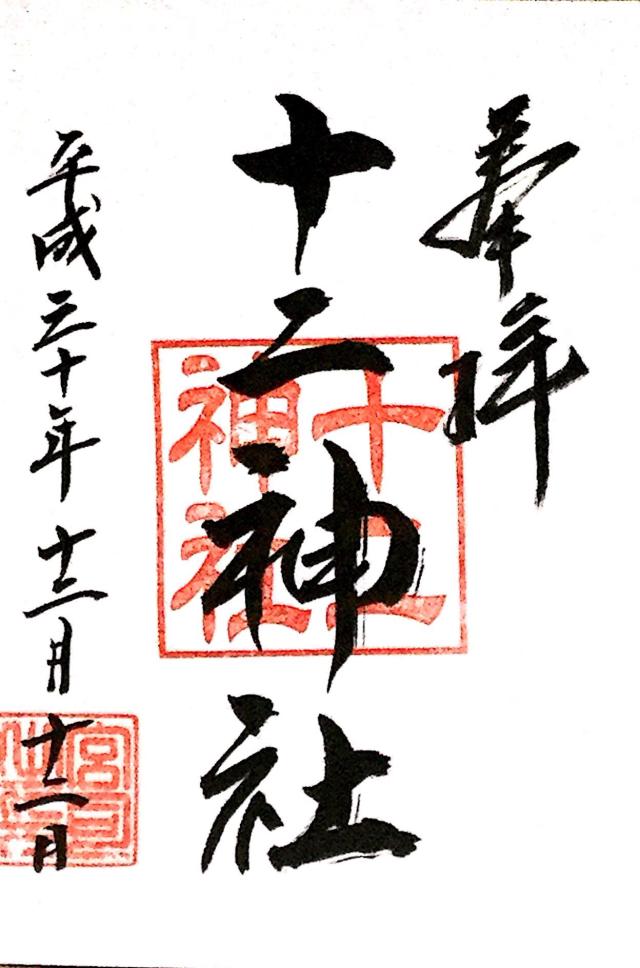 奉拝
十二神社
十二
神社
平成三十年十二月十二日
宮司
之印